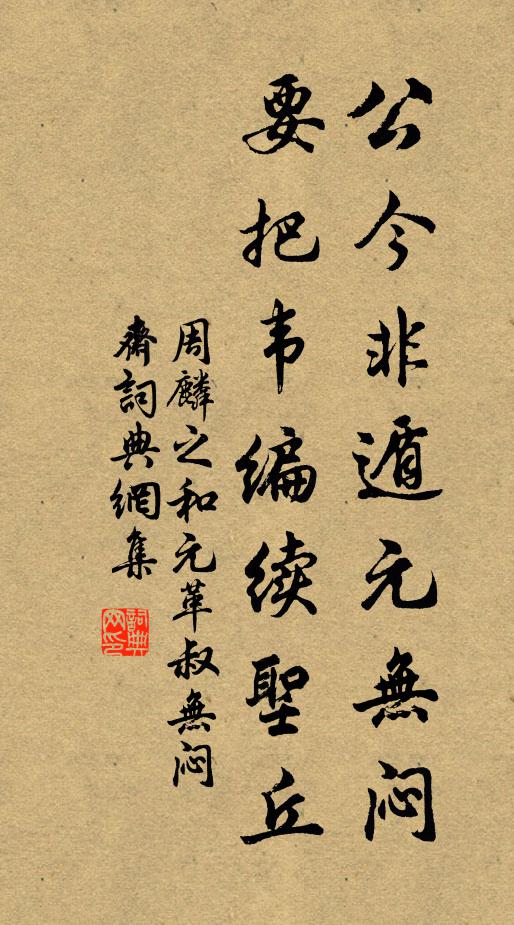 公今非遁元無闷
要把韦编续聖丘
周麟之和元革叔無闷
齋詞典網集
詞典网印